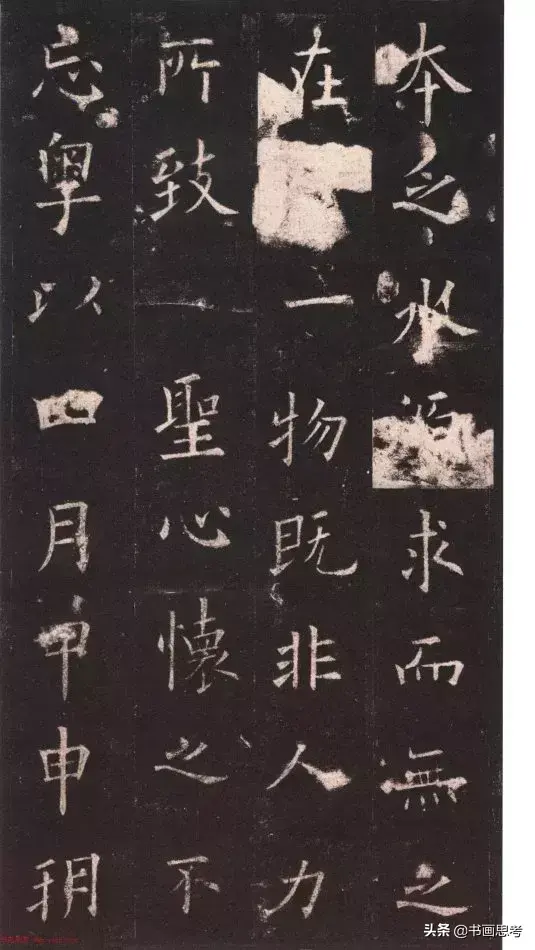 本乏水求而無之
在一物既非人力
所致一聖心懷之不
忘粵以四月甲申朔
头条 @书画思考